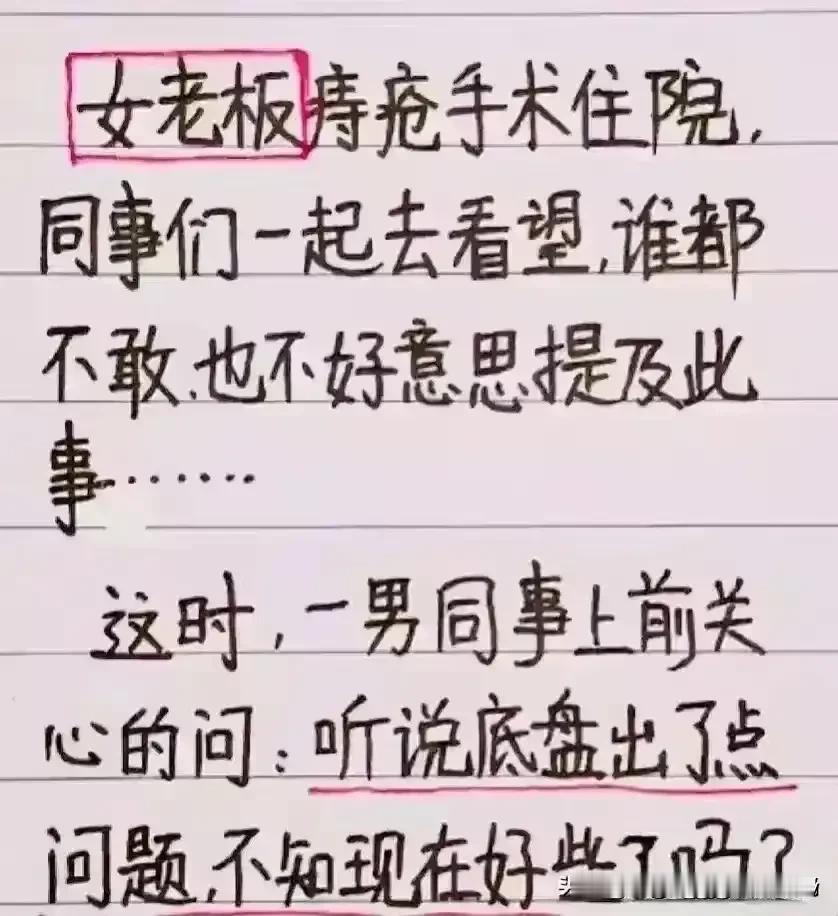 女老板痔疮手术住院,
同事们一起去看望,谁都
不敢、也不好意思提及此
事·······
这时,一男同事上前关
心的问:听说底盘出了点
问题,不知现在好些了吗?